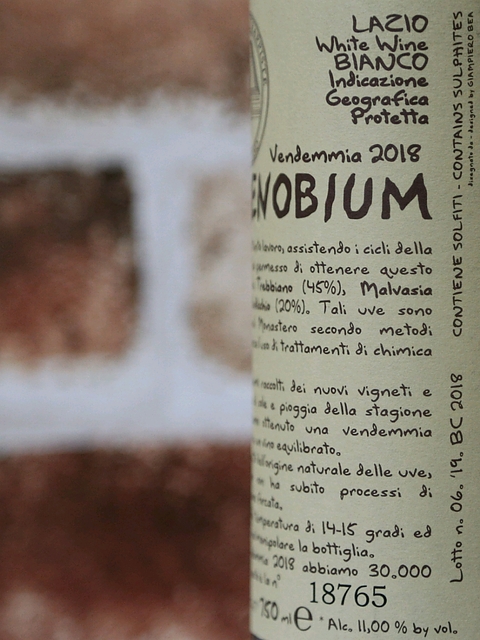 LAZIO
White Wine
BIANCO
Indicazione
Geografica
Protetta
Vendemmia 2018
ENOBIUM
lavoro, assistendo i cicli della
permesso di ottenere questo
Trebbiano (45%), Malvasia
(20%). Tali uve sono
Monastero secondo metodi
di trattamenti di chimica
raccolti dei nuovi vigneti e
sole e pioggia della stagione
ottenuto una vendemmia
vino equilibrato.
all'origine naturale delle uve,
non ha subito processi di
forzata.
temperatura di 14-15 gradi ed
manipolare la bottiglia.
2018 abbiamo 30.000
è la n°
18765
750 ml e * Alc. 11,00 % by vol.
Lotto n. 06. '19. BC 2018
CONTIENE SOLFITI - CONTAINS SULPHITES
disegnato da - designed by GIAMPIERO BEA